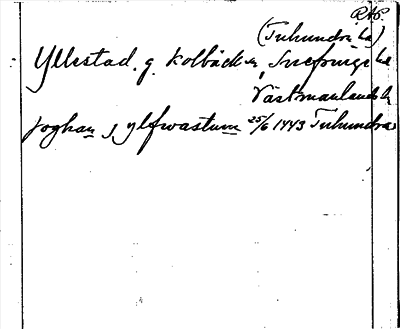 RAP.
(Tuhundra hd)
Yllestad. g. Kolbäck sn, Snefringe hd
Västmanlands l.
joghan j ylfwastum 25/6 1443 Tuhundra